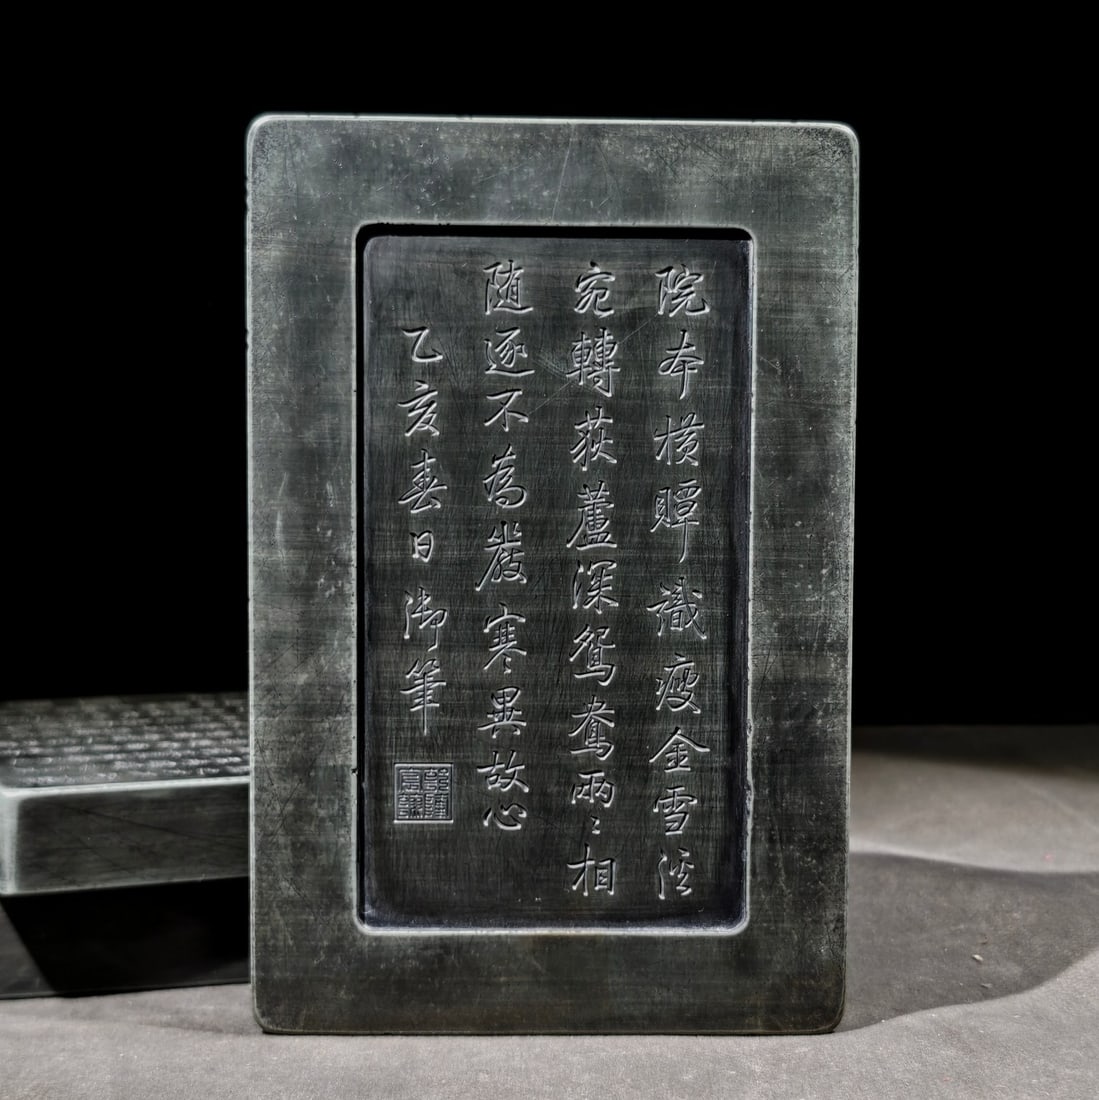 院本横贉識瘦金雪
宛轉荻蘆深鴛鴦兩〻相
随逐不為嚴寒異故心
乙亥春日御筆
乾隆宸翰